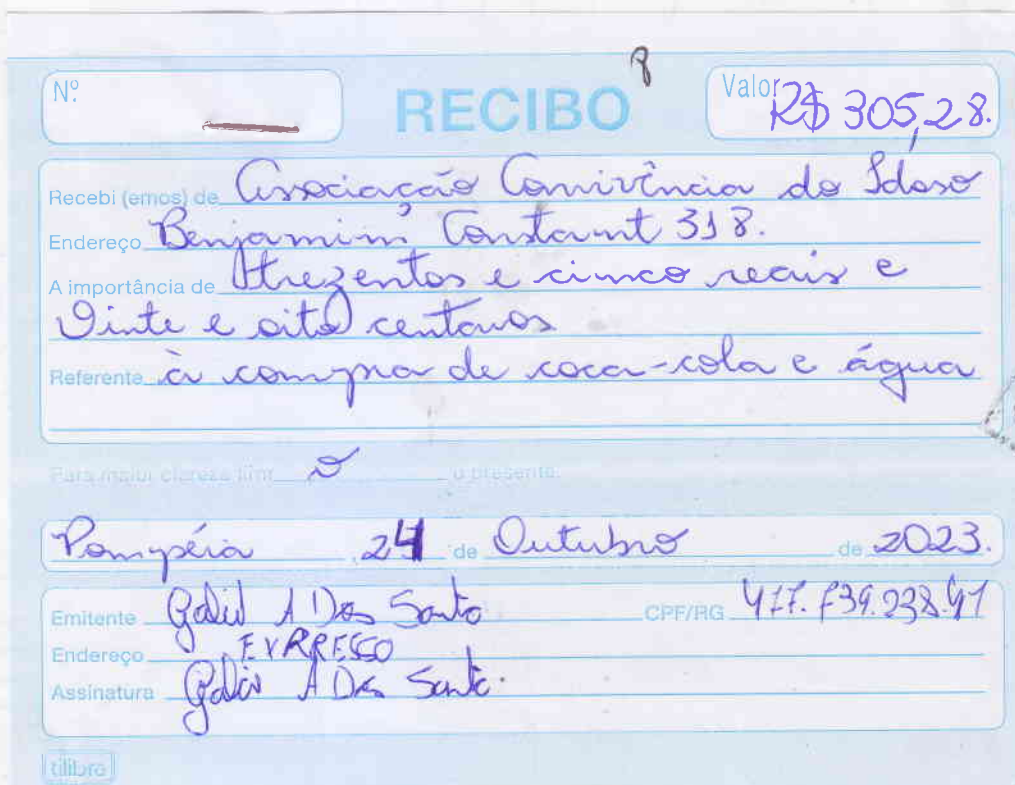 8
Nº
RECIBO
Valor R$ 305,28.
Recebi (emos) de Associação Convivência do Idoso
Endereço Benjamim Constant 318.
A importância de trezentos e cinco reais e
Vinte e oito centavos
Referente à compra de coca-cola e água
Para maior clareza firm o o presente.
Pompéia , 24 de Outubro de 2023.
Emitente A Dos Santo CPF/RG
Endereço
Assinatura A Dos Santo.
tilibra